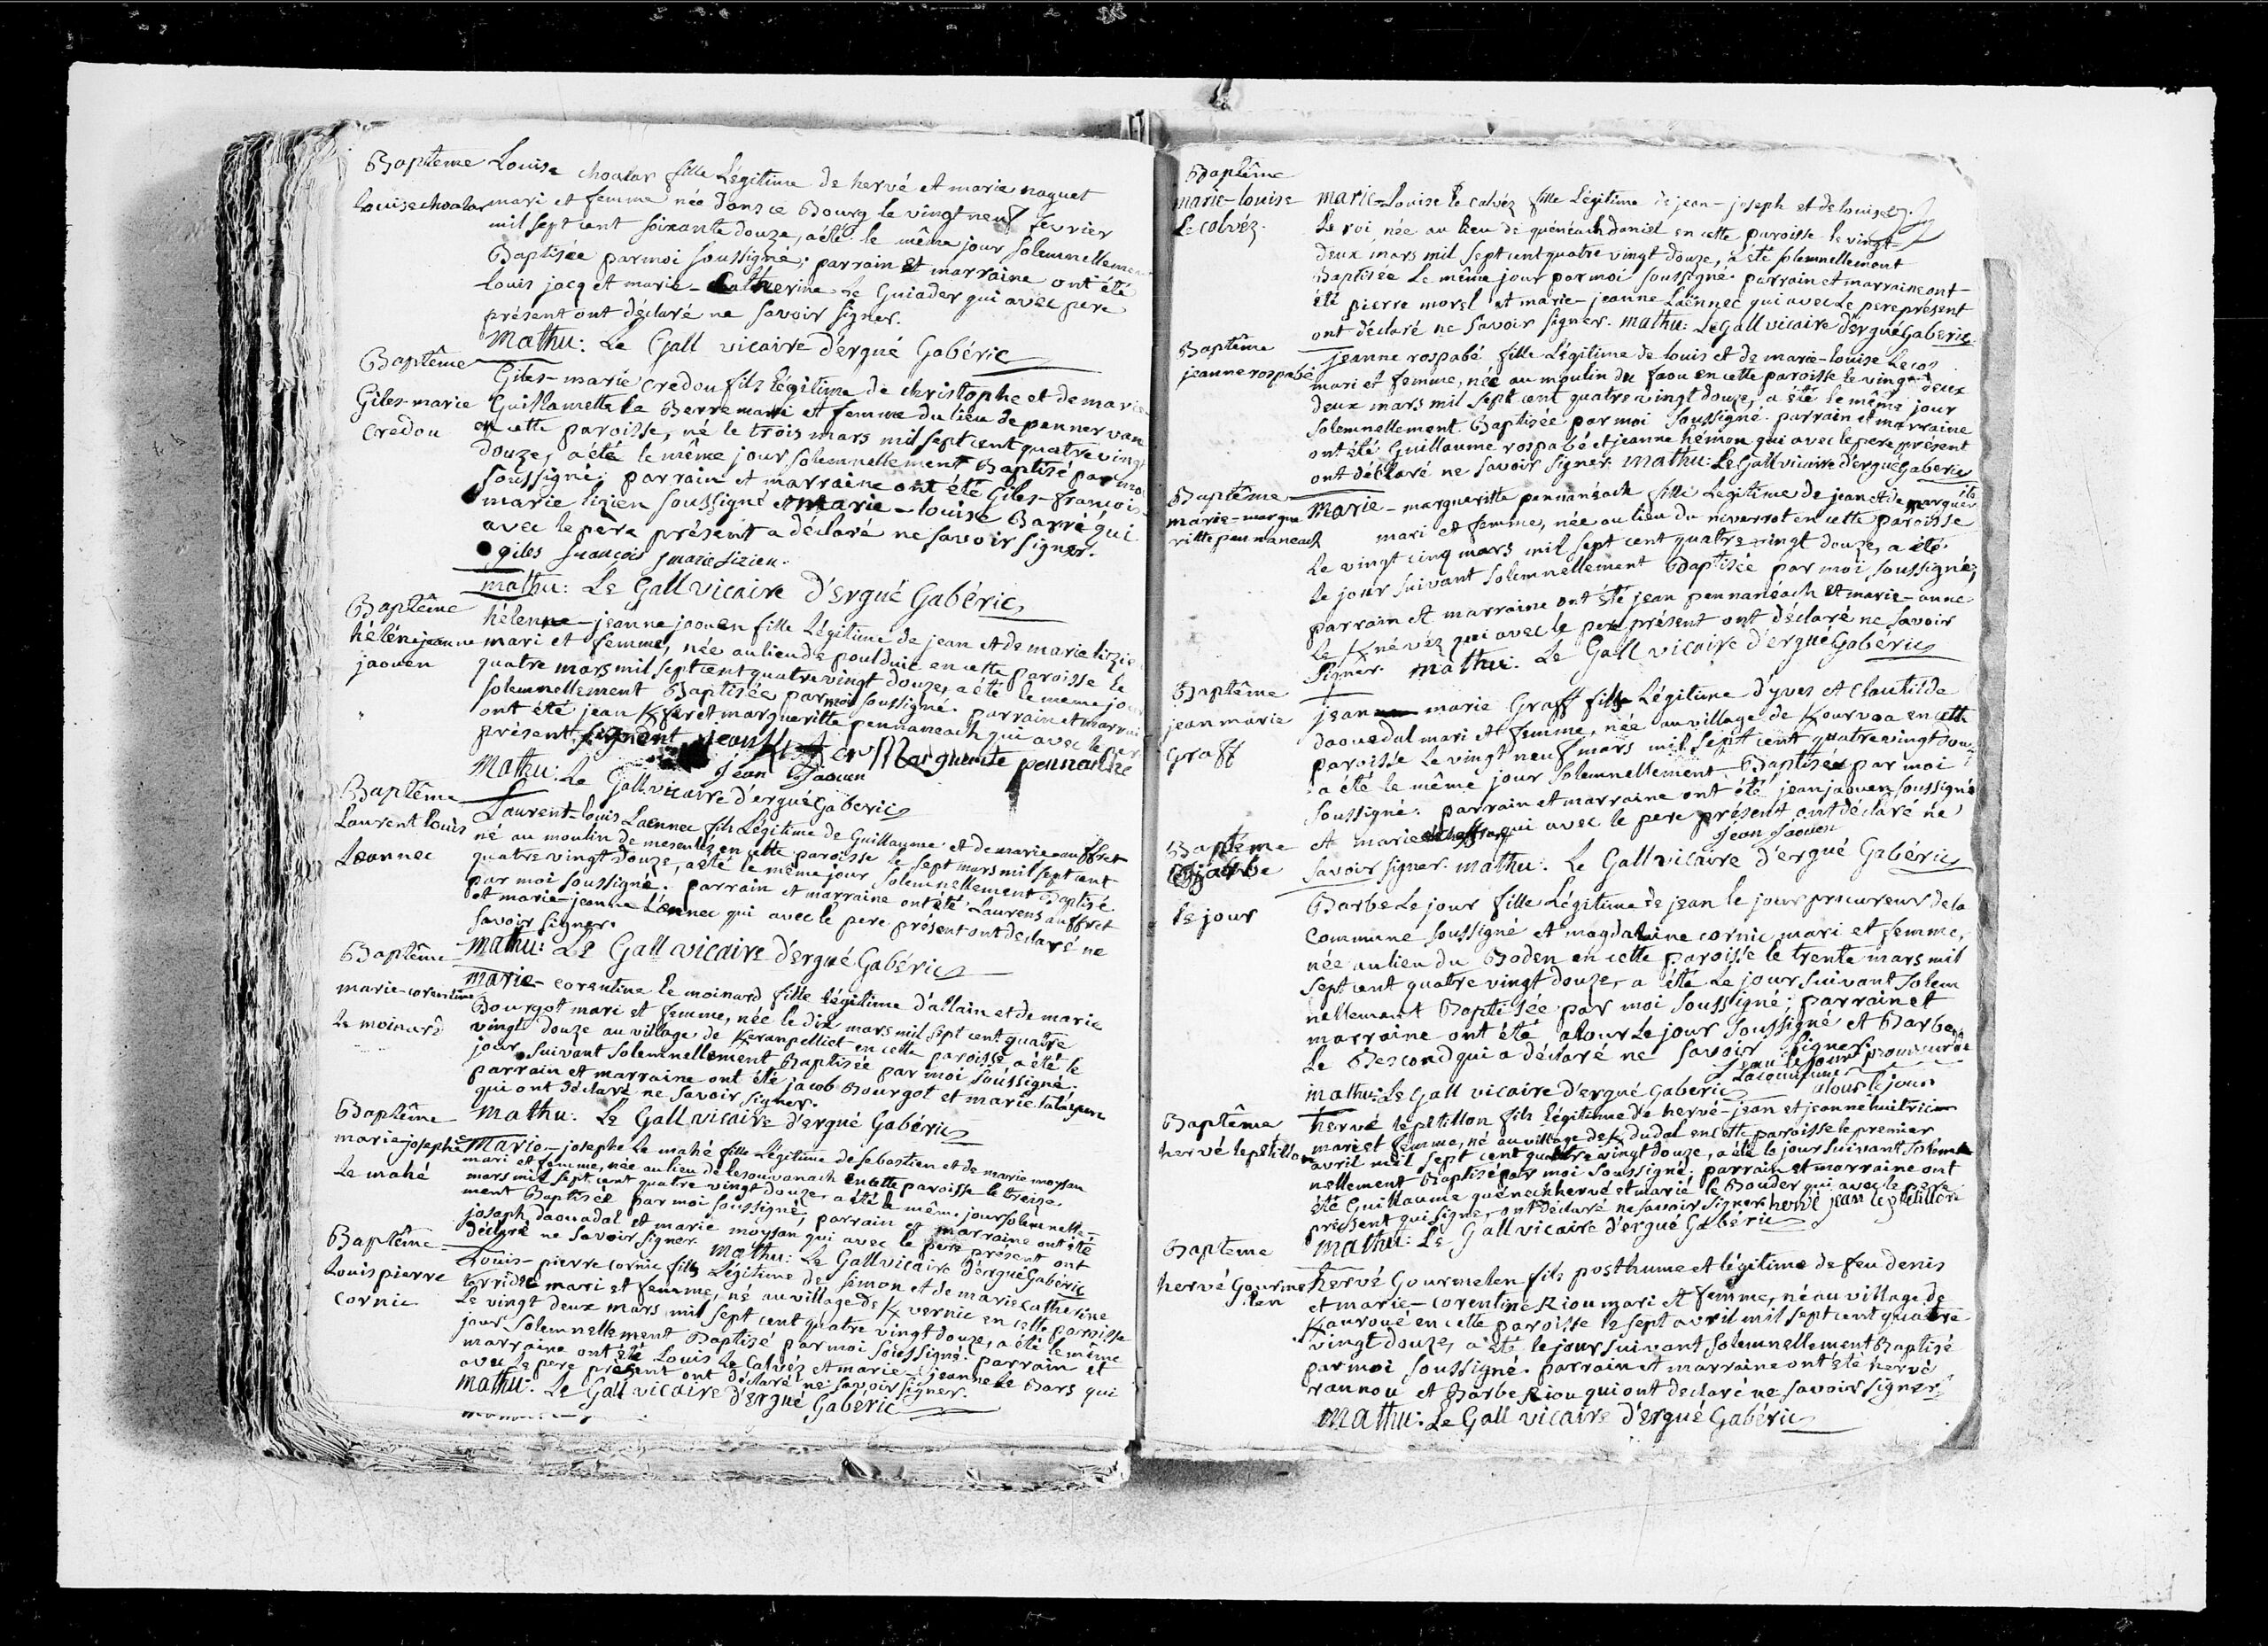 Baptême
Louise choalar
Louise choalar fille Légitime de hervé et marie naguet
mari et femme née dans ce Bourg le vingt neuf fevrier
mil sept cent soixante douze, a été le même jour solemnellement
Baptisée par moi soussigné; parrain et marraine ont été
Louis jacq et marie-Catherine Le Guiader qui avec pere
présent ont déclaré ne savoir signer.
Mathu: Le Gall vicaire d'ergué Gabéric
Baptême
Giles-marie
Credou
Giles-marie Credou fils légitime de christophe et de marie
Guillamette Le Berre mari et femme du lieu de pennervan
en cette paroisse, né le trois mars mil sept cent quatre vingt
douze, a été le même jour solemnellement Baptisé par moi
soussigné; parrain et marraine ont été Giles-françois
marie lizien soussigné et marie-louise Barré qui
avec le pere présent a déclaré ne savoir signer.
giles françois marie Lizien.
mathu: Le Gall vicaire d'ergué Gabéric
Baptême
hélène jeanne
jaouen
hélenne-jeanne jaouen fille Légitime de jean et de marie lizien
mari et femme, née au lieu de poulduic en cette paroisse le
quatre mars mil sept cent quatre vingt douze, a été le meme jour
solemnellement Baptisée par moi soussigné. parrain et marraine
ont été jean Kfer et margueritte pennaneach qui avec le pere
présent signent jean Kfer Marguerite pennaneach
Jean Jaouen
Mathu: Le Gall vicaire d'ergué Gaberic
Baptême
Laurent louis
Leannec
Laurent-louis Laennec fils Légitime de Guillaume et de marie auffret
né au moulin de mesentez en cette paroisse le sept mars mil sept cent
quatre vingt douze, a été le même jour solemnellement Baptisé
par moi soussigné. parrain et marraine ont été Laurens auffret
et marie-jeanne Lännec qui avec le pere présent ont declaré ne
savoir signer.
Mathu: Le Gall vicaire d'ergué Gabéric
Baptême
marie-corentine
Le moinard
marie-corentine le moinard fille légitime d'allain et de marie
Bourgot mari et femme, née le dix mars mil sept cent quatre
vingt douze au village de Keranpelliet en cette paroisse a été le
jour suivant solemnellement Baptisée par moi soussigné.
parrain et marraine ont été jacob Bourgot et marie
qui ont déclaré ne savoir signer.
Mathu: Le Gall vicaire d'ergué Gabéric
Baptême
marie-josephe
Le mahé
Marie-josephe Le mahé fille Légitime de Sebastien et de marie moysan
mari et femme, née au lieu de Lesouvanach en cette paroisse le treize
mars mil sept cent quatre vingt douze, a été le même jour solemnelle-
ment Baptisée par moi soussigné, parrain et marraine ont été
joseph daouadal et marie moysan qui avec le pere présent ont
déclaré ne savoir signer. Mathu: Le Gall vicaire d'ergué Gabéric
Baptême
Louis pierre
Cornic
Louis-pierre cornic fils Légitime de simon et de marie Catherine
Kerridec mari et femme, né au village de Kvernic en cette paroisse
Le vingt deux mars mil sept cent quatre vingt douze, a été le même
jour solemnellement Baptisé par moi soussigné. parrain et
marraine ont été Louis Le Calvéz et marie-jeanne Le Bars qui
avec Le pere présent ont déclaré ne savoir signer.
Mathu: Le Gall vicaire d'ergué Gabéric
Baptême
marie-louise
Le calvéz.
marie-Louise le calvéz fille Légitime de jean-joseph et de louise
Le roi née au lieu de quénéach daniel en cette paroisse le vingt
deux mars mil sept cent quatre vingt douze, a été solemnellement
Baptisée Le même jour par moi soussigné. parrain et marraine ont
été pierre morel et marie-jeanne Laënnec qui avec Le pere présent
ont déclaré ne savoir signer. Mathu: Le Gall vicaire d'ergué Gaberic
Baptême
jeanne rospabé
jeanne rospabé fille Légitime de louis et de marie-louise Le cos
mari et femme, née au moulin du faou en cette paroisse le vingt deux
deux mars mil sept cent quatre vingt douze, a été le même jour
solemnellement Baptisée par moi soussigné. parrain et marraine
ont été Guillaume rospabé et jeanne hémon qui avec le pere présent
ont déclaré ne savoir signer. Mathu: Le Gall vicaire d'ergué Gaberic
Baptême
marie-margue
ritte pennaneach
Marie-margueritte pennanéach fille Légitime de jean et de marguerite
mari et femme, née au lieu du niverrot en cette paroisse
Le vingt cinq mars mil sept cent quatre vingt douze, a été
le jour suivant solemnellement Baptisée par moi soussigné;
parrain et marraine ont été jean pennanéach et marie-anne
Le Knévéz qui avec le pere présent ont déclaré ne savoir
signer. Mathu: Le Gall vicaire d'ergué Gabéric
Baptême
jean marie
Graff
jean marie Graff fils Légitime d'yves et Cloutilde
daouedal mari et femme, née au village de Kourvoa en cette
paroisse Le vingt neuf mars mil sept cent quatre vingt douze
a été le même jour solemnellement Baptisée par moi
soussigné. parrain et marraine ont été jean jaouen soussigné
et marie qui avec le pere présent ont déclaré ne
Jean Jaouen
savoir signer. Mathu: Le Gall vicaire d'ergué Gabéric
Baptême
Barbe
Le jour
Barbe Le jour fille Légitime de jean le jour procureur de la
commune soussigné et magdalaine cornic mari et femme,
née au lieu du Boden en cette paroisse le trente mars mil
sept cent quatre vingt douze, a été Le jour suivant solem
nellement Baptisée par moi soussigné; parrain et
marraine ont été alour Le jour soussigné et Barbe
Le Bescond qui a déclaré ne savoir signer.
jean le jour procureur de
La commune
mathu: Le Gall vicaire d'ergué Gaberic alour le jour
Baptême
hervé lepetillon
hervé lepetillon fils Légitime de hervé-jean et jeanne huitric
mari et femme, né au village de Kdudal en cette paroisse le premier
avril mil sept cent quatre vingt douze, a été le jour suivant solem
nellement Baptisé par moi soussigné. parrain et marraine ont
été Guillaume quénechhervé et marie le Bouder qui avec le pere
présent qui signe, ont déclaré ne savoir signer hervé jean le petillon
Mathu: Le Gall vicaire d'ergué Gabéric
Baptême
hervé Gourme
len
hervé Gourmelen fils posthume et légitime de feu denis
et marie-corentine Riou mari et femme, né au village de
Kaurouè en cette paroisse le sept avril mil sept cent quatre
vingt douze, a été le jour suivant solemnellement Baptisé
par moi soussigné. parrain et marraine ont été hervé
rannou et Barbe Riou qui ont declaré ne savoir signer
Mathu: Le Gall vicaire d'ergué Gabéric